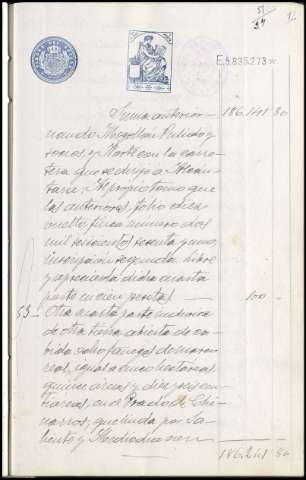 51
E5.835.273*
Suma anterior 186.141 50
y Norte con la carre-
tera que se dirige a Alcán-
tara: Al propio tomo que
las anteriores, folio diez
vuelto finca número dos
mil trescientos sesenta y uno,
inscripción segunda. Libre
y apreciada dicha cuarta
parte en cien pesetas 100
53 Otra cuarta parte indivisa
de otra tierra abierta de ca-
bida ocho fanegas de marco
real, igual a cinco hectáreas
quince áreas y diez y seis cen-
tiáreas, en el Prado de Chi-
narros, que linda por Sa-
liente y Mediodia con
186.241 50